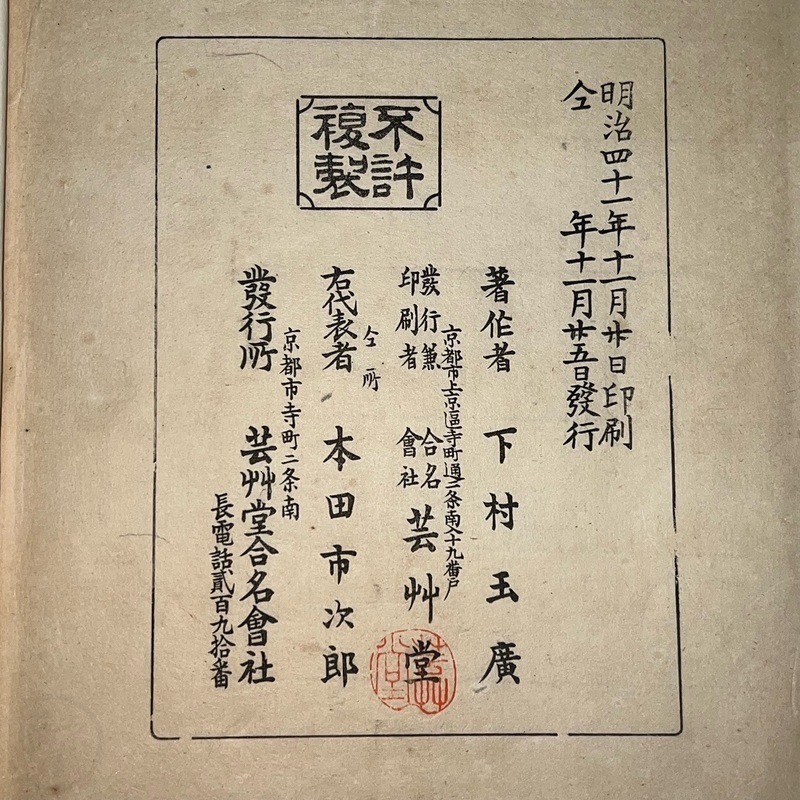 明治四十一年十一月廿日印刷
仝　年十一月廿五日發行
不許
複製
著作者　下村玉廣
京都市上京區寺町通二条南入十九番戸
發行兼
印刷者
合名
會社
芸艸堂
芸艸堂
仝所
右代表者　本田市次郎
京都市寺町二条南
發行所　芸艸堂合名會社
長電話貳百九拾番